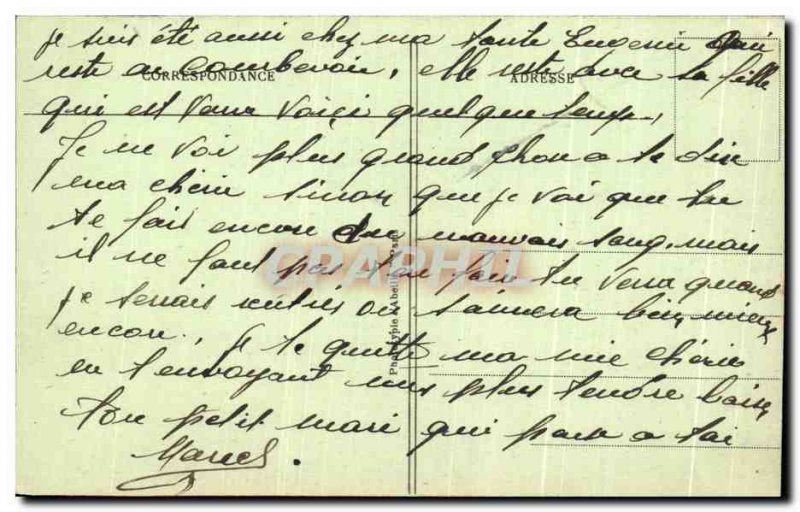 je suis été aussi chez ma tante Eugenie qui
reste a Courbevoie, elle reste avec sa fille
CORRESPONDANCE
ADRESSE
qui est veuve voici quelque temps,
Je ne voi plus grand chose a te dire
ma chérie sinon que je voi que tu
te fais encore du mauvais sang, mais
il ne faut pas t'en faire tu verra quand
je serais rentrés on s'aimera bien mieux
encore, je te quitte ma mie chérie
en t'envoyant mes plus tendre baiser
ton petit mari qui pense a toi
Marcel.
CPARAMA
Phototypie d'Abeill